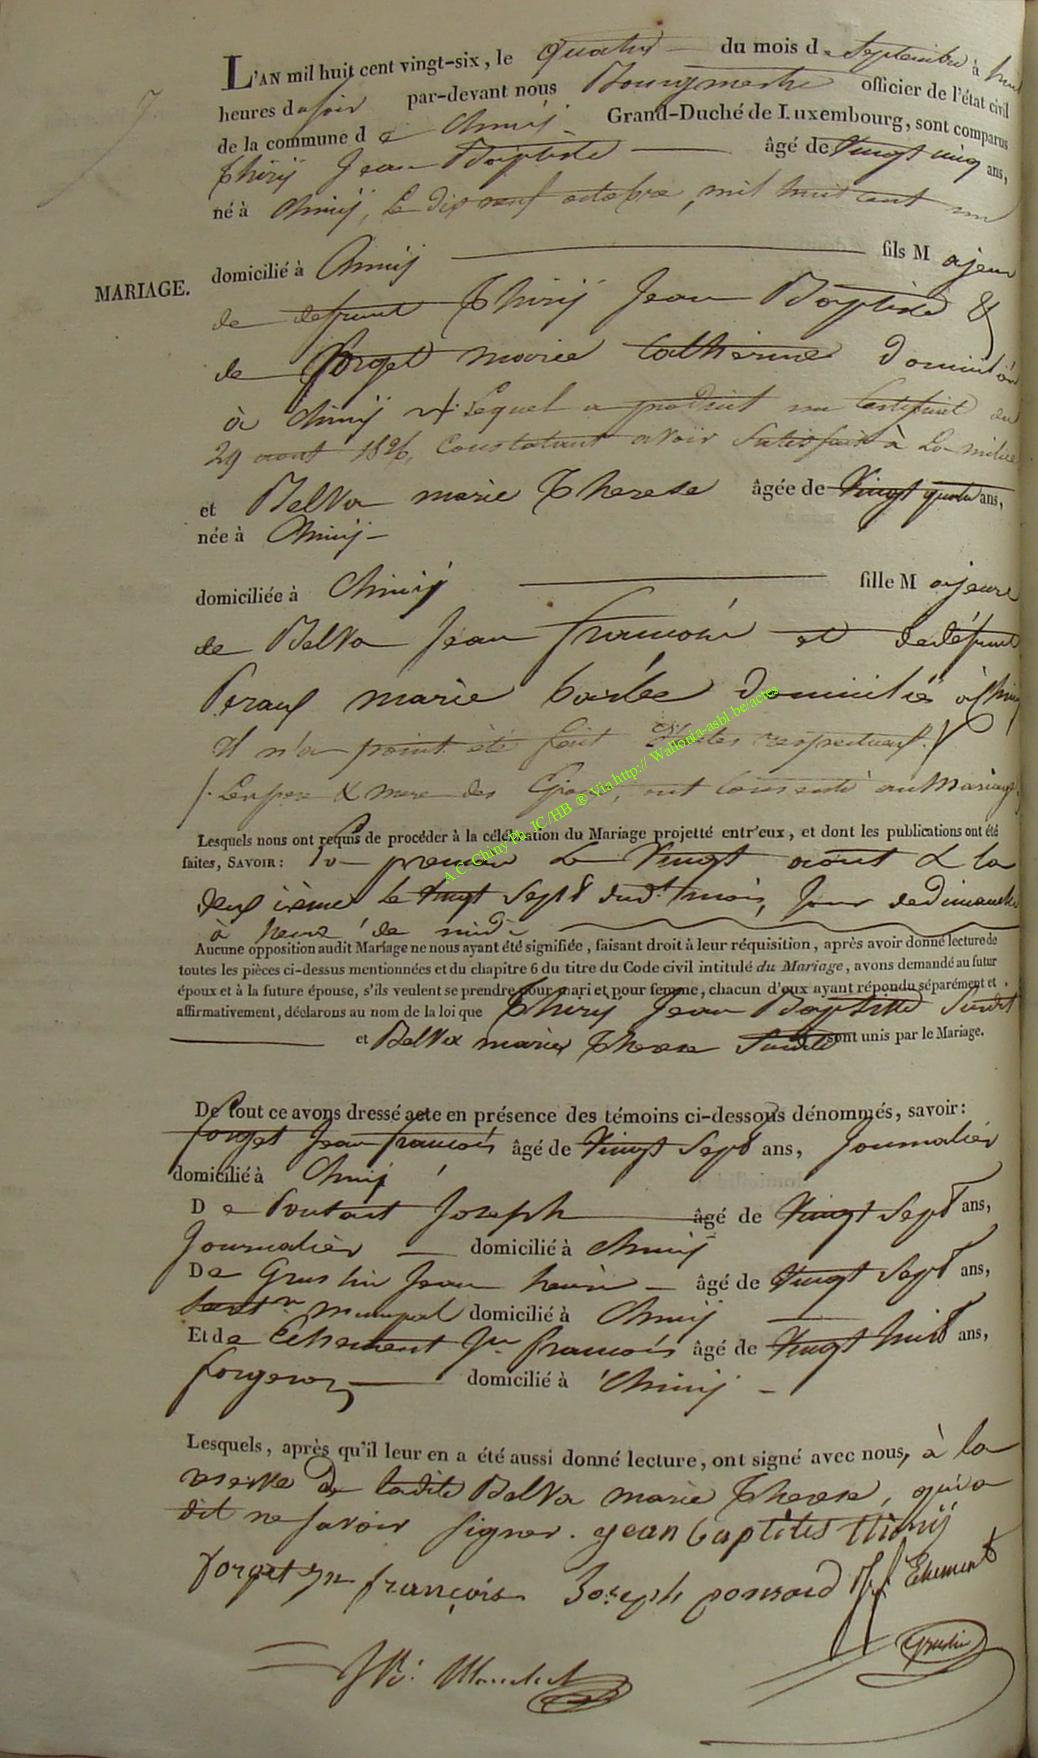 L'AN mil huit cent vingt-six, le quatre du mois de Septembre à huit
heures du soir par-devant nous Bourgmestre officier de l'état civil
de la commune d e Chiny Grand-Duché de Luxembourg, sont comparus
Thiry Jean Baptiste âgé de vingt cinq ans,
né à Chiny, le dix neuf octobre, mil huit cent un
MARIAGE.
domicilié à Chiny fils M ajeur
de defunt Thiry Jean Baptiste &
de forget marie catherine domiciliés
à Chiny Lequel a produit un Certificat du
29 aout 1826, Constatant avoir Satisfait à La milice
et Belva marie Therese âgée de Vingt quatre ans,
née à Chiny
domiciliée à Chiny fille M ajeure
de Belva Jean françois et de défunte
marie barbe Domiciliés à Chiny
Il n'a point été fait respectueux
mere des ont consenti au Mariage
Lesquels nous ont requis de procéder à la célébration du Mariage projetté entr'eux, et dont les publications ont été
faites, SAVOIR : la premier Le Vingt aout & la
deuxième le vingt Sept dudt mois, Jour de dimanche
à heure de midi
Aucune opposition audit Mariage ne nous ayant été signifiée, faisant droit à leur réquisition, après avoir donné lecture de
toutes les pièces ci-dessus mentionnées et du chapitre 6 du titre du Code civil intitulé du Mariage, avons demandé au futur
époux et à la future épouse, s'ils veulent se prendre pour mari et pour femme, chacun d'eux ayant répondu séparément et
affirmativement, déclarons au nom de la loi que Thiry Jean Baptiste Susdit
et Belva marie Therese Susdite sont unis par le Mariage.
De tout ce avons dressé acte en présence des témoins ci-dessous dénommés, savoir:
forget Jean françois âgé de Vingt Sept ans, Journalier
domicilié à Chiny
D e Joseph âgé de Vingt Sept ans,
Journalier domicilié à Chiny
De Jean henri âgé de Vingt Sept ans,
domicilié à Chiny
Et de Jn françois âgé de Vingt huit ans,
forgeron domicilié à Chiny
Lesquels, après qu'il leur en a été aussi donné lecture, ont signé avec nous, à la
de ladite Belva marie Therese, qui a
dit ne savoir signer. jean baptites thiry
forget jn françois Joseph ponsard
A.C. Chiny Ph. JC/HB ® Via http://Wallonia-asbl.be/actes